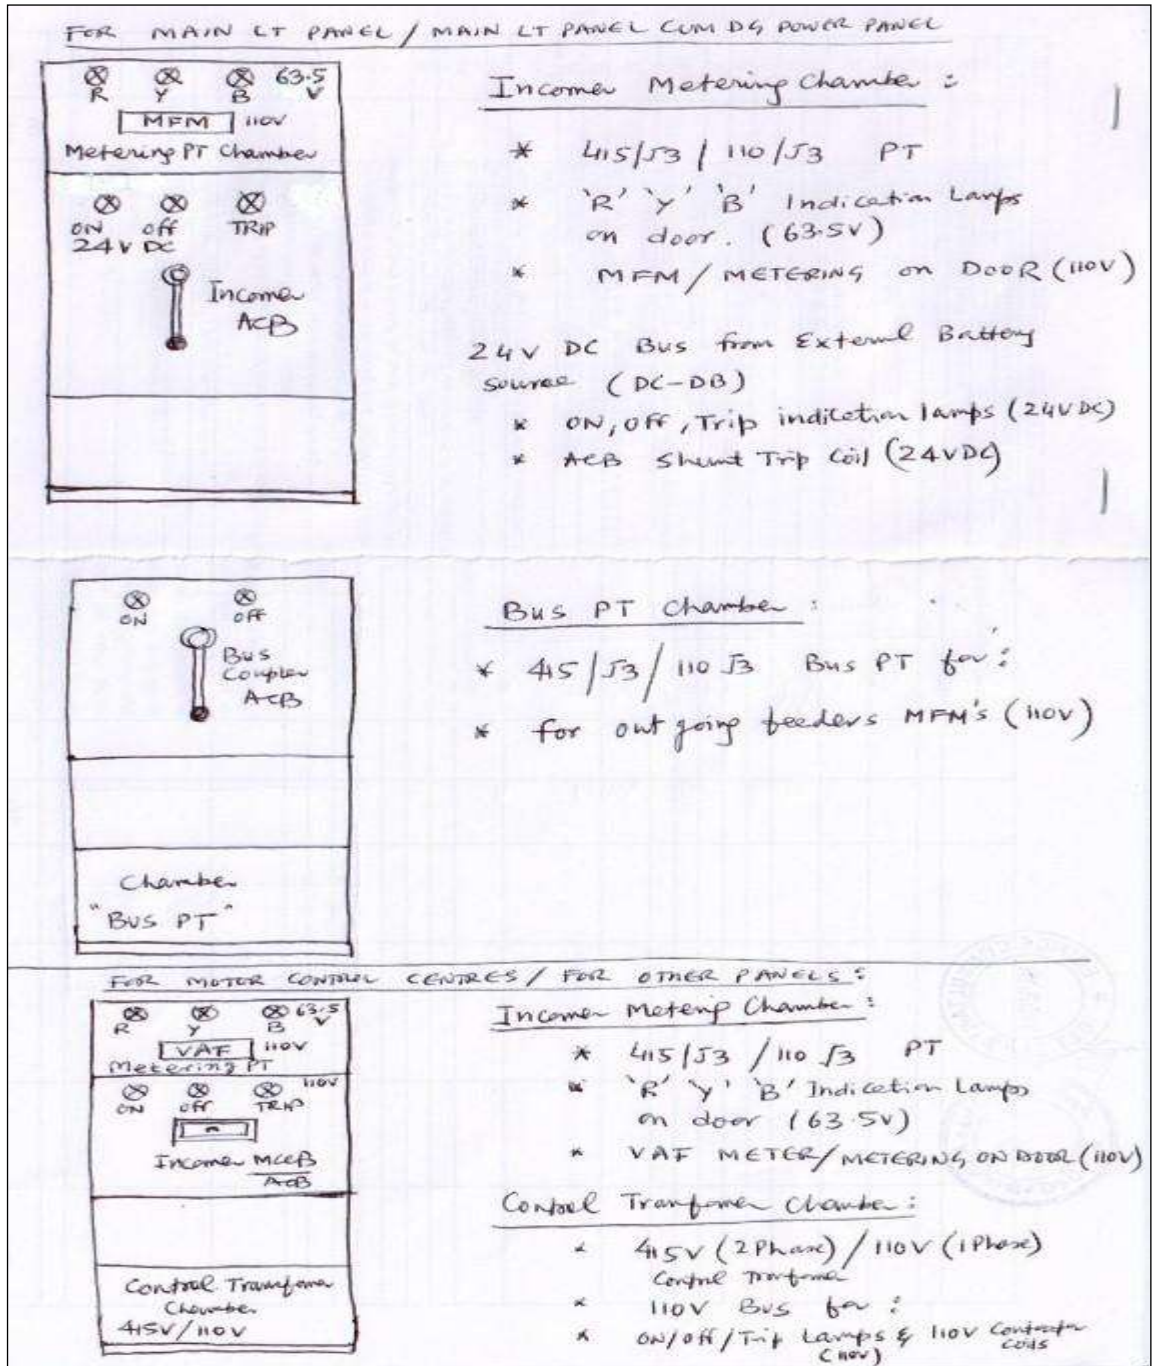 FOR MAIN LT PANEL / MAIN LT PANEL CUM DG POWER PANEL
R Y B 63.5 V
MFM 110V
Metering PT Chamber
ON OFF TRIP
24V DC
Incomer
ACB
Incomer Metering Chamber :
* 415/√3 / 110/√3 PT
* 'R' 'Y' 'B' Indication Lamps
on door. (63.5V)
* MFM / METERING on DOOR (110V)
24V DC Bus from External Battery
Source (DC-DB)
* ON, OFF, Trip indication lamps (24V DC)
* ACB Shunt Trip Coil (24V DC)
ON OFF
Bus
Coupler
ACB
Chamber
"BUS PT"
Bus PT Chamber :
* 415/√3 / 110 √3 Bus PT for :
* for out going feeders MFM's (110V)
FOR MOTOR CONTROL CENTRES / FOR OTHER PANELS :
R Y B 63.5 V
VAF 110V
Metering PT
ON OFF TRIP 110V
Incomer MCCB
ACB
Control Transfomer
Chamber
415V/110V
Incomer Metering Chamber :
* 415/√3 / 110 √3 PT
* 'R' 'Y' 'B' Indication Lamps
on door (63.5V)
* VAF METER / METERING ON DOOR (110V)
Control Tranfomer Chamber :
* 415V (2 Phase) / 110V (1 Phase)
Control Tranfomer
* 110V Bus for :
* ON/OFF/Trip Lamps & 110V Contactor
(110V) Coils